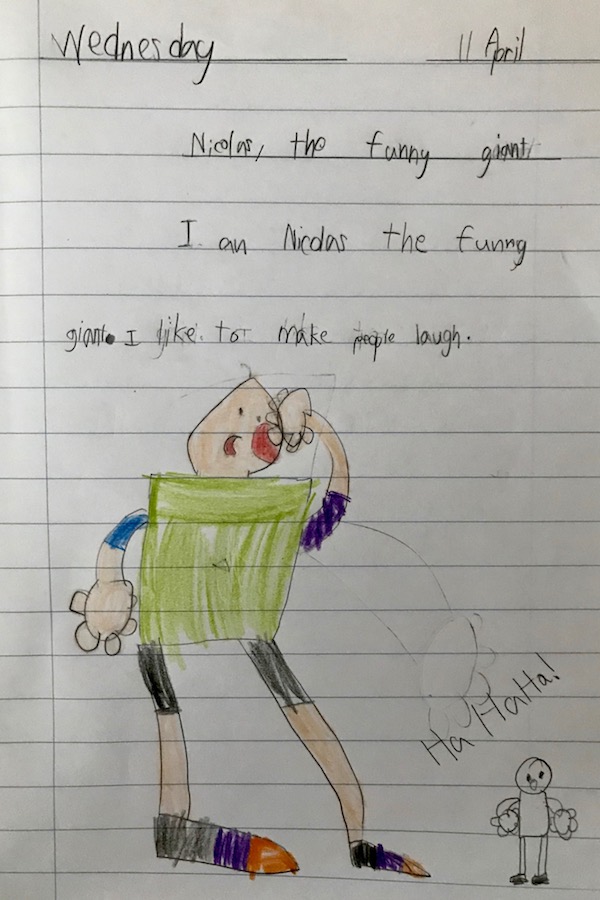 Wednesday 11 April
Nicolas, the funny giant
I an Nicolas the funny
giant. I like to make people laugh.
Ha HaHa!